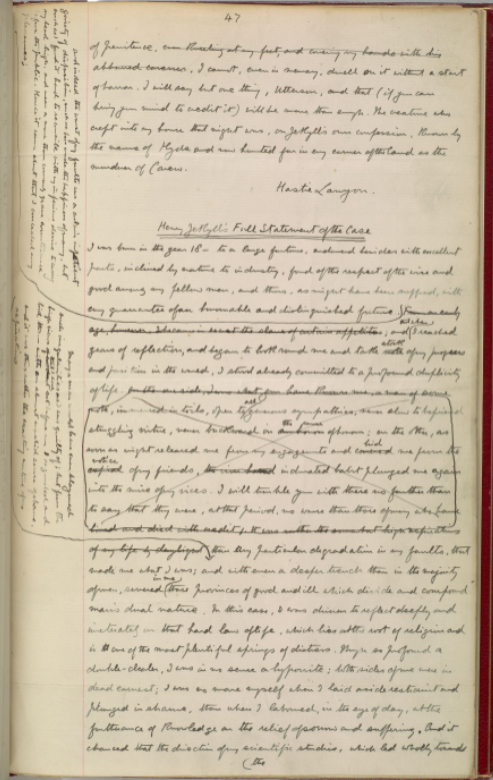 47
of penitence, even kneeling at my feet, and
abhorred I cannot, even in memory, dwell on it without a start
of horror. I will say but one thing, Utterson, and that (if you can
bring your mind to credit it) will be more than enough. The creature who
crept into my house that night was, on Jekyll's own confession, known by
the name of Hyde and now hunted for in any corner of the land as the
murderer of Carew.
Hastie Lanyon.
Henry Jekyll's Full Statement of the Case
I was born in the year 18— to a large fortune, endowed besides with excellent
parts, inclined by nature to industry, fond of the respect of the wise and
good among my fellow men, and thus, as might have been supposed, with
any guarantee of an honourable and distinguished future
age, however, I became in secret the slave of certain appetites; and when I reached
years of reflection, and began to look round me and take stock of my progress
and position in the world, I stood already committed to a profound duplicity
of life.
immersed in toils, open to all generous sympathies,
struggling virtue, never backward in of honour; on the other, as
soon as night released me from my engagements and hid me from the
notice of my friends, plunged me again
into the mire of my vices. I will trouble you with these no further than
to say that they were, at that period, no worse than those of many who have
lived and died with credit
of my life by daylight than any particular degradation in my faults, that
made me what I was; and with even a deeper trench than in the majority
of men, severed in me those provinces of good and ill which divide and compound
man's dual nature. In this case, I was driven to reflect deeply and
inveterately on that hard law of life, which lies at the root of religion and
is one of the most plentiful springs of distress. Though so profound a
double-dealer, I was in no sense a hypocrite; both sides of me were in
dead earnest; I was no more myself when I laid aside restraint and
plunged in shame, than when I laboured, in the eye of day, at the
furtherance of knowledge or the relief of sorrow and suffering. And it
chanced that the direction of my scientific studies, which led wholly towards
the
And indeed the worst of my faults was a certain impatient
gaiety of disposition, such as has made the happiness of many, but
such as I found it hard to reconcile with my imperious desire to carry
my head high, and wear a more than commonly grave countenance
before the public. Hence it came about that I concealed my
pleasures;
Many a man would have even blazoned
such irregularities as I was guilty of; but from the
high views that I had set before me, I regarded and
hid them with an almost morbid sense of shame.
and it was rather the exacting nature of my
aspirations